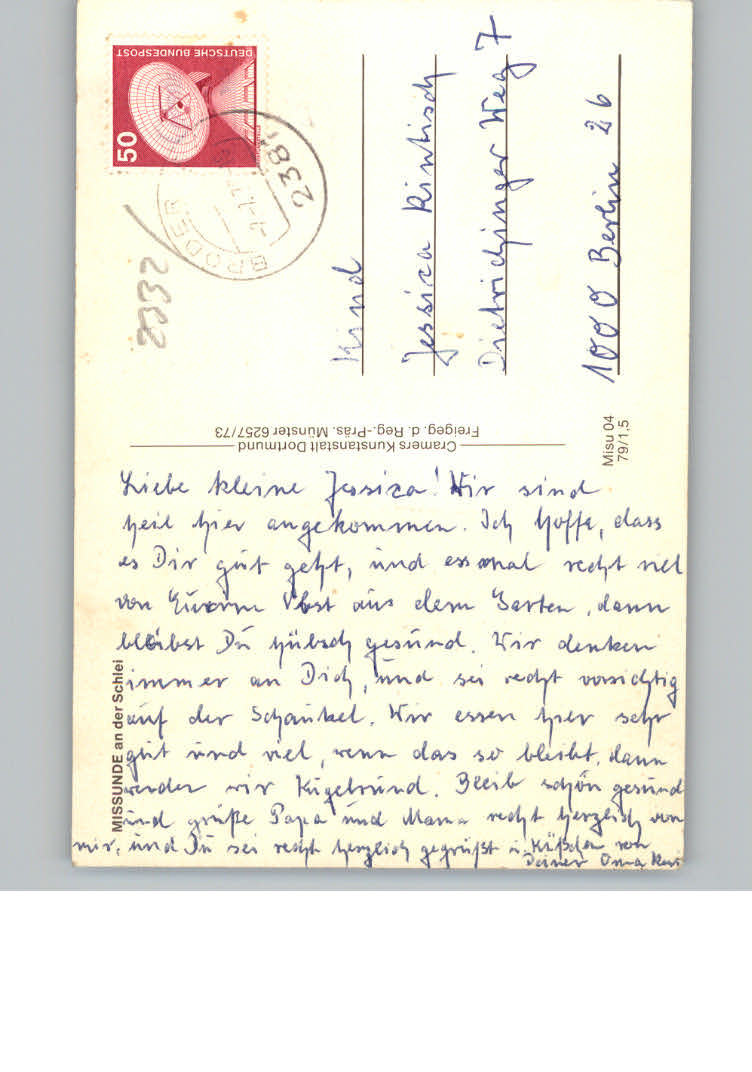 DEUTSCHE BUNDESPOST
50
238
BRODER
2332
Kind
Jessica Kintisch
Dietrichinger Weg 7
1000 Berlin 26
Cramers Kunstanstalt Dortmund
Freigeg. d. Reg.-Präs. Münster 6257/73
Misu 04
79/1,5
MISSUNDE an der Schlei
Liebe kleine Jessica! Wir sind
heil hier angekommen. Ich hoffe, dass
es Dir gut geht, und ess mal recht viel
von Eurem Obst aus dem Garten, dann
bleibst Du hübsch gesund. Wir denken
immer an Dich, und sei recht vorsichtig
auf der Schaukel. Wir essen hier sehr
gut und viel, wenn das so bleibt, dann
werden wir Kugelrund. Bleib schön gesund
und grüße Papa und Mama recht herzlich von
mir, und Du sei recht herzlich gegrüßt u. Küßchen von
Deiner Oma